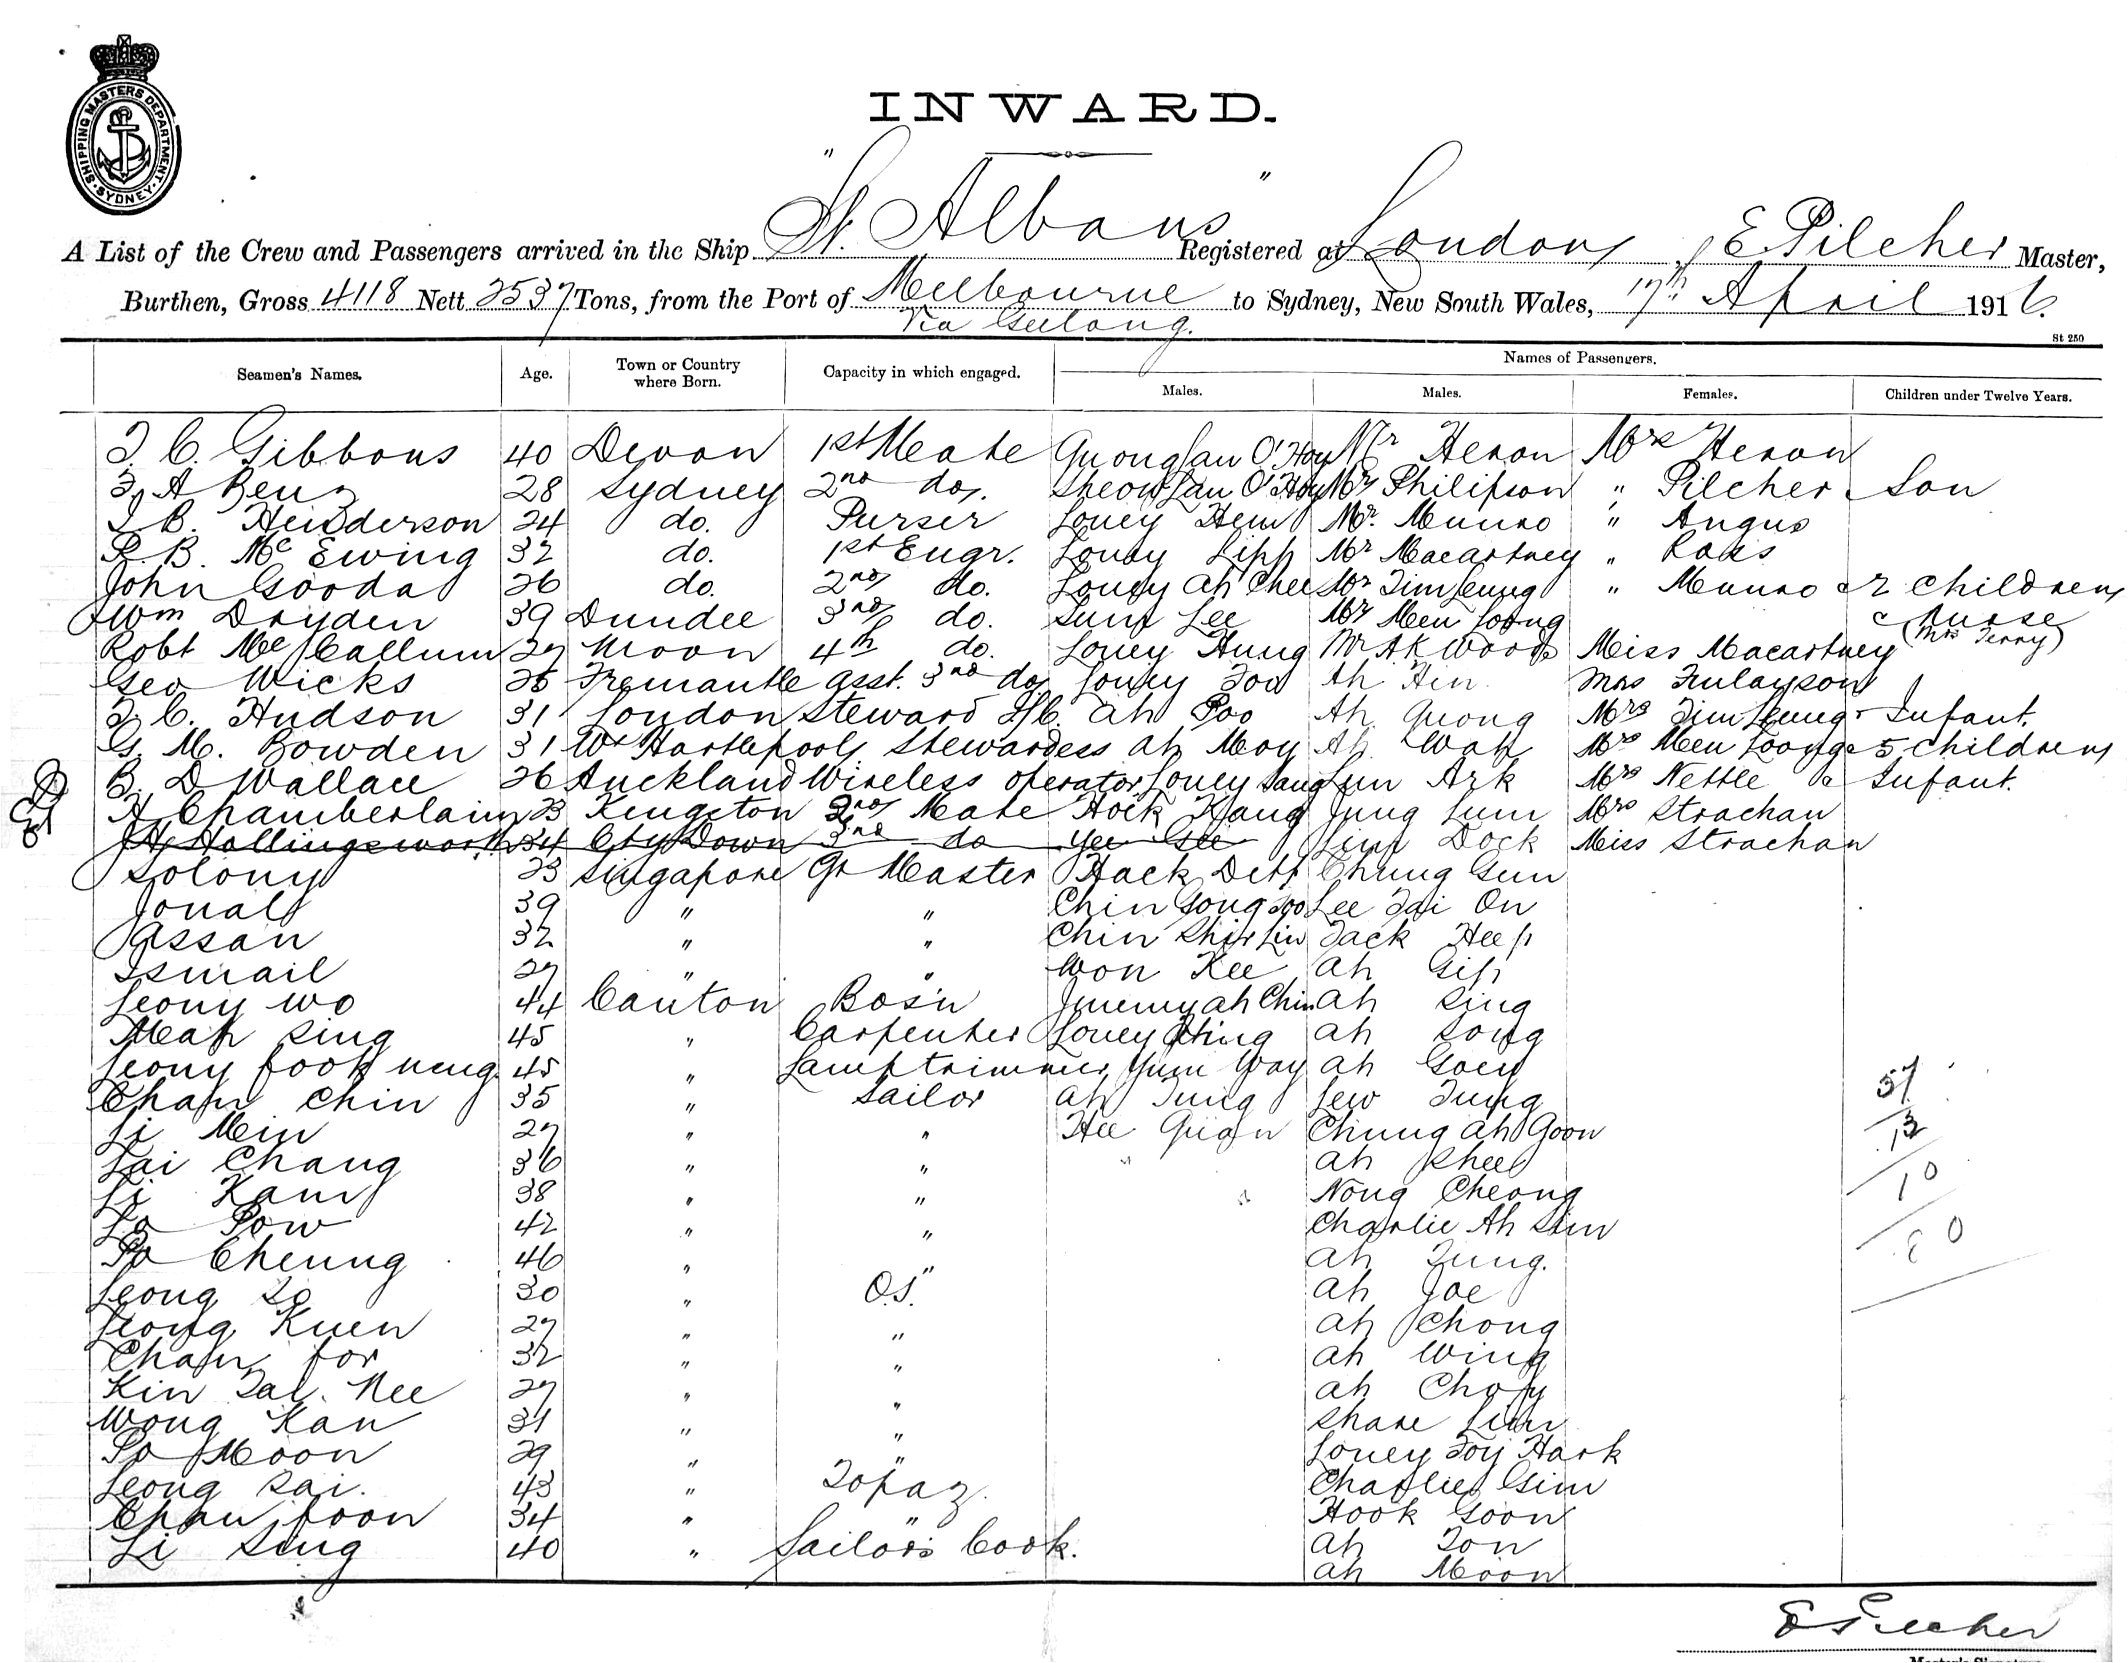 SHIPPING MASTERS DEPARTMENT. SYDNEY.
INWARD.
A List of the Crew and Passengers arrived in the Ship "St. Albans" Registered at London, E Pilcher Master,
Burthen, Gross 4118 Nett 2537 Tons, from the Port of Melbourne to Sydney, New South Wales, 17th April 1916.
Via Geelong.
St 250
Seamen's Names. Age. Town or Country where Born. Capacity in which engaged. Names of Passengers.
Males. Males. Females. Children under Twelve Years.
C. Gibbons 40 Devon 1st Mate Quong San O'Hoy Mr Heron Mrs Heron
A Benz 28 Sydney 2nd do. Sheow San O'Hoy Mr Philipson " Pilcher Son
B. Henderson 24 do. Purser Louey Hem Mr. Munro " Angus
R. B. Mc Ewing 32 do. 1st Engr. Louey Lipp Mr Macartney " Ross
John Gooda 26 do. 2nd do. Louey Ah Chee Mr Tim Leung " Munro & 2 children
Wm Dryden 39 Dundee 3rd do. Sung Lee Mr Men Loong & Nurse
Robt Mc Callum 27 Moon 4th do. Louey Hung Mr A K Woods Miss Macartney (Mrs Terry)
Geo Wicks 26 Fremantle Asst. 3rd do Louey Too Ah Hin Mrs Finlayson
C. Hudson 31 London Steward I/C. Ah Poo Ah Quong Mrs Tim Leung & Infant.
G. M. Bowden 31 Wt Hartlepool Stewardess Ah Moy Ah Wah Mrs Men Loong & 5 children
B D Wallace 26 Auckland Wireless operator Louey Sang Sun Ark Mrs Nettle & Infant.
A Chamberlain 23 Kingston 3rd Mate Hock Kang Jung Sum Mrs Strachan
H Hollingsworth 34 Cty Down 3rd do Yee Gee Dock Miss Strachan
Solony 23 Singapore Qr Master Hack Chung Gun
Jonal 39 " " Chin Song Too Lee Tai On
Assan 32 " " Chin Shir Lin Jack Heep
Ismail 27 " " Won Kee Ah Gip
Leong Wo 44 Canton Bos'n Jimmy Ah Chin Ah Sing
Meah Sing 45 " Carpenter Louey Hing Ah Song
Leong Fook Neng 45 " Lamptrimmer Yum Way Ah Goey
Chan Chin 35 " Sailor Ah Tung Lew Tung 57
Li Min 27 " " Hee Quan Chung Ah Goon 13
Lai Chang 36 " " Ah Shee 10
Li Kam 38 " " Nong Cheong
Lo Pow 42 " " Charlie Ah Sim 80
Po Cheung 46 " " Ah Tung.
Leong So 30 " O.S. Ah Joe
Leong Kuen 27 " " Ah Chong
Chan For 32 " " Ah Wing
Kin Tai Nee 27 " " Ah Choy
Wong Kan 31 " " Share Lum
Po Moon 29 " " Louey Toy Hark
Leong Sai. 43 " Topaz. Charlie Gim
Chan Foon 34 " " Hook Goon
Li Sing 40 " Sailor's Cook. Ah Ton
Ah Moon
E Pilcher